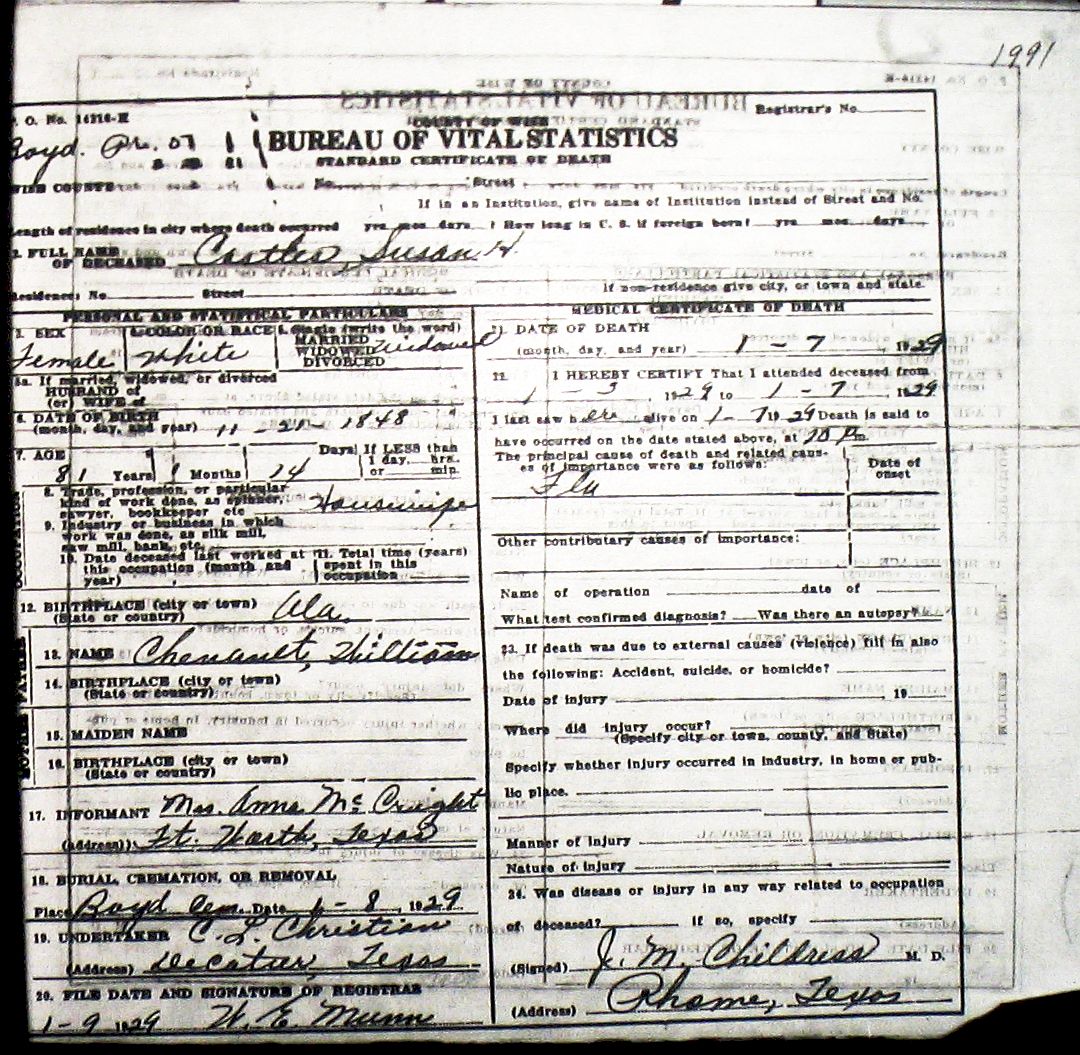 1991
P. O. No. 14216-H
Registrar's No.
COUNTY OF WISE
Boyd. Pre. 07
BUREAU OF VITAL STATISTICS
STANDARD CERTIFICATE OF DEATH
WISE COUNTY No. Street
If in an Institution, give name of Institution instead of Street and No.
Length of residence in city where death occurred yrs. mos. days. How long in U. S. if foreign born? yrs. mos. days
2. FULL NAME OF DECEASED Castles, Susan H.
Residence: No. Street If non-residence give city, or town and state.
PERSONAL AND STATISTICAL PARTICULARS
3. SEX Female
4. COLOR OR RACE White
5. Single (write the word) MARRIED WIDOWED DIVORCED Widowed
5a. If married, widowed, or divorced
HUSBAND of
(or) WIFE of
6. DATE OF BIRTH
(month, day, and year) 11 - 21 - 1848
7. AGE
81 Years 1 Months 14 Days If LESS than 1 day, hrs. or min.
8. Trade, profession, or particular
kind of work done, as spinner,
sawyer, bookkeeper etc Housewife
9. Industry or business in which
work was done, as silk mill,
saw mill, bank, etc.
10. Date deceased last worked at
this occupation (month and
year)
11. Total time (years)
spent in this
occupation
OCCUPATION
12. BIRTHPLACE (city or town) Ala.
(State or country)
13. NAME Chenault, William
14. BIRTHPLACE (city or town)
(State or country)
15. MAIDEN NAME
16. BIRTHPLACE (city or town)
(State or country)
17. INFORMANT Mrs. Anna McCright
(Address) Ft. Worth, Texas
18. BURIAL, CREMATION, OR REMOVAL
Place Boyd Cem. Date 1 - 8, 1929
19. UNDERTAKER C. L. Christian
(Address) Decatur, Texas
20. FILE DATE AND SIGNATURE OF REGISTRAR
1-9 1929 W. E. Munn
MEDICAL CERTIFICATE OF DEATH
21. DATE OF DEATH
(month, day, and year) 1 - 7 1929
22. I HEREBY CERTIFY That I attended deceased from
1 - 3, 1929 to 1 - 7, 1929
I last saw her alive on 1 - 7 1929 Death is said to
have occurred on the date stated above, at 10 Pm.
The principal cause of death and related caus-
es of importance were as follows:
Date of
onset
Flu
Other contributary causes of importance:
Name of operation date of
What test confirmed diagnosis? Was there an autopsy?
23. If death was due to external causes (violence) fill in also
the following: Accident, suicide, or homicide?
Date of injury , 19
Where did injury occur?
(Specify city or town, county, and State)
Specify whether injury occurred in industry, in home or pub-
lic place.
Manner of injury
Nature of injury
24. Was disease or injury in any way related to occupation
of deceased? if so, specify
(Signed) J. M. Childress M. D.
(Address) Rhome, Texas